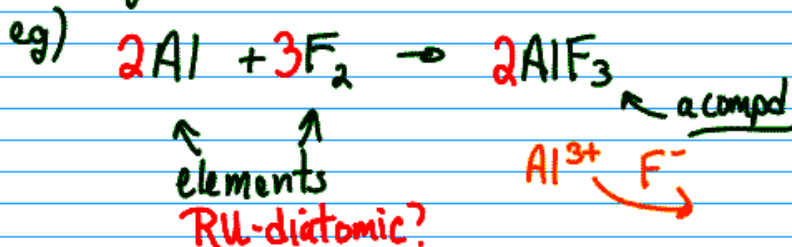 eg) 2Al + 3F₂ → 2AlF₃
a compd
elements
Al³⁺ F⁻
RU-diatomic?